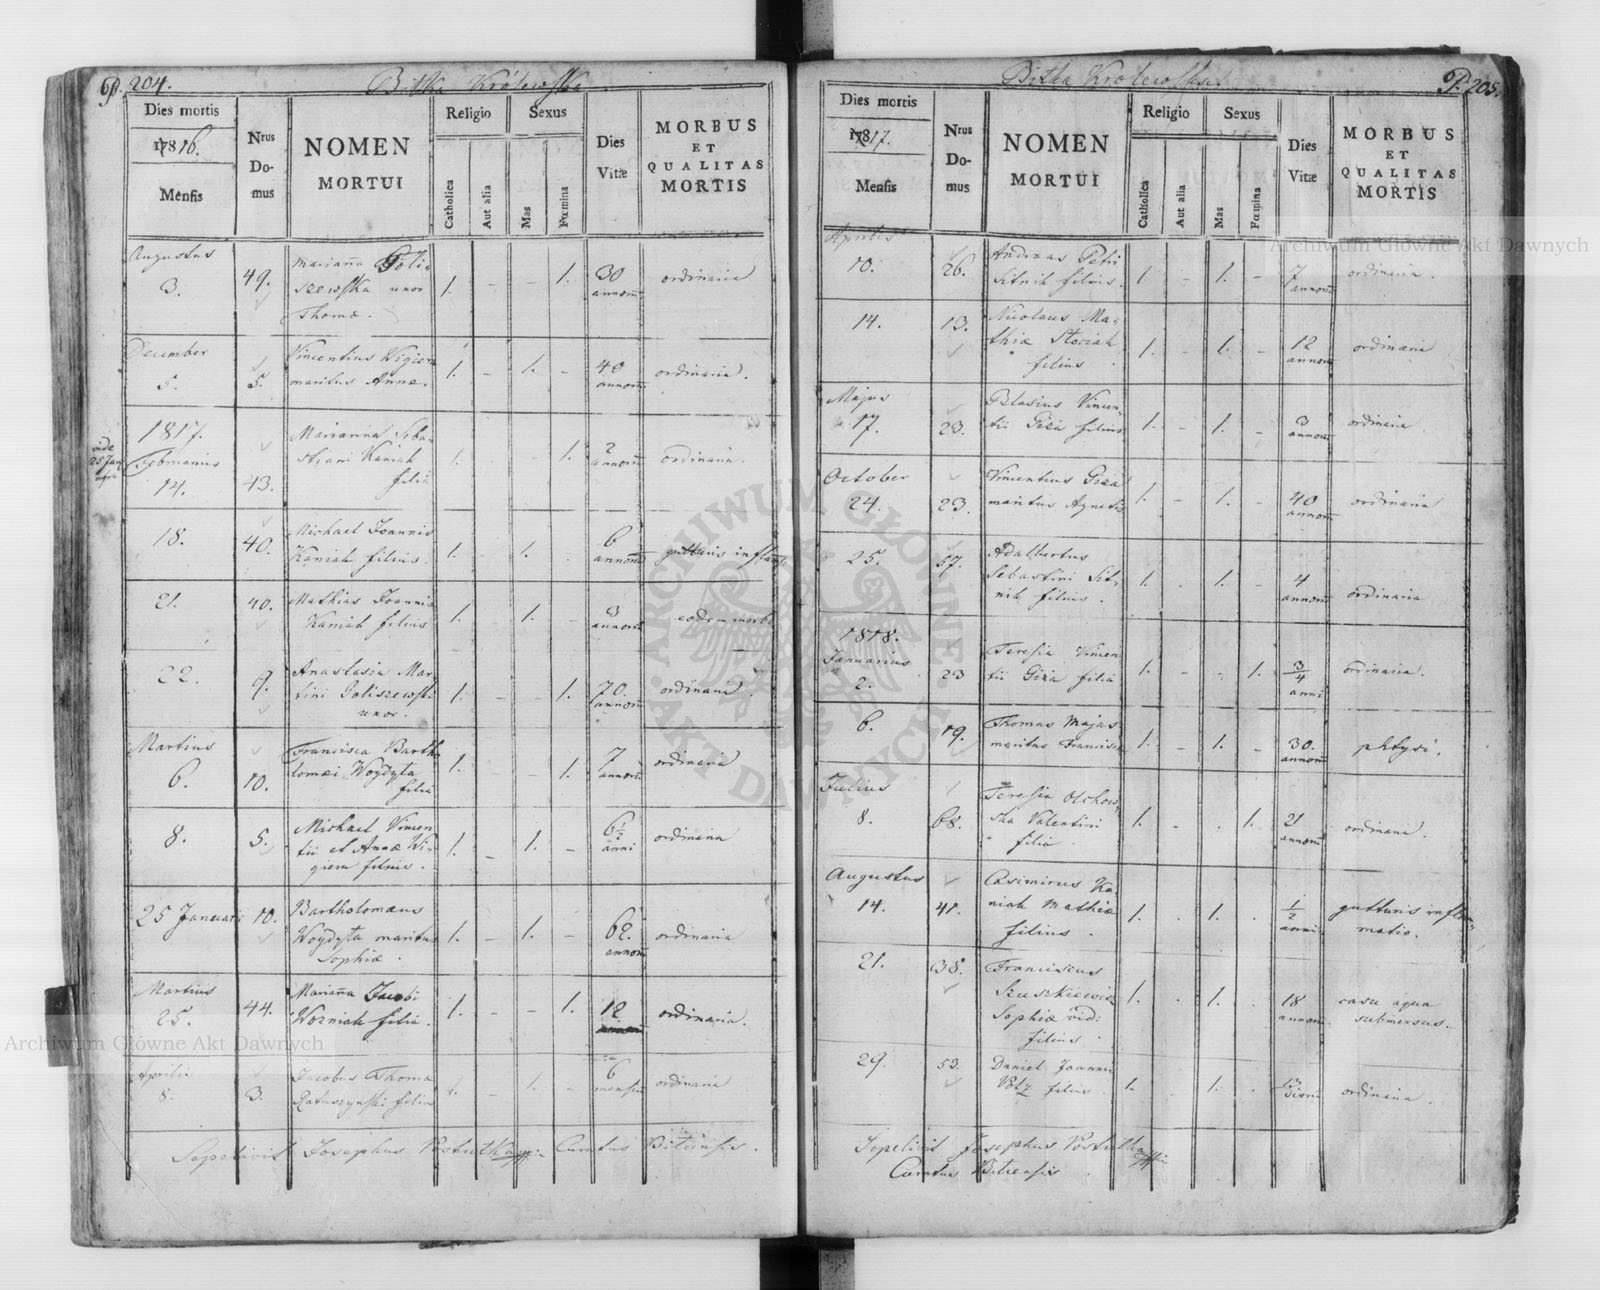 P. 204.
Bitka Królewska
Dies mortis
1816.
Mensis
Nrus Do-mus
NOMEN
MORTUI
Religio
Catholica
Aut alia
Sexus
Mas
Fœmina
Dies
Vitæ
MORBUS
ET
QUALITAS
MORTIS
Augustus
3. 49. Marianna Goli-
szewska uxor
Thomæ. 1. - - 1. 30 annorum ordinaria
December
5. 5. Vincentius Wigiera
maritus Annæ. 1. - 1. - 40 annorum ordinaria.
1817.
vide 25 Jan
Februarius
14. 43. Marianna Seba-
stiani Kaniak
filia 1. - - 1. 2 annorum ordinaria.
18. 40. Michael Joannis
Kaniak filius. 1. - 1. - 6 annorum gutturis inflam.
21. 40. Mathias Joannis
Kaniak filius 1. - 1. - 3 annorum eodem morbo
22. 9. Anastasia Mar-
tini Goliszewski
uxor. 1. - - 1. 70. annorum ordinaria.
Martius
6. 10. Francisca Bartho-
lomæi Woydyta
filia 1. - - 1. 7 annorum ordinaria
8. 5. Michael Vincen-
tii et Annæ Wi-
giera filius. 1. - 1. - 6½ anni ordinaria
25 Januarii 10. Bartholomæus
Woydyta maritus
Sophiæ. 1. - 1. - 62. annorum ordinaria
Martius
25. 44. Marianna Jacobi
Wozniak filia. 1. - - 1. 12. ordinaria.
Aprilis
8. 3. Jacobus Thomæ
Ratuszynski filius 1. - 1. - 6 mensium ordinaria
Sepelivit Josephus Postulka Curatus Bitcensis.
P. 205.
Bitka Krolewska
Dies mortis
1817.
Mensis
Nrus Do-mus
NOMEN
MORTUI
Religio
Catholica
Aut alia
Sexus
Mas
Fœmina
Dies
Vitæ
MORBUS
ET
QUALITAS
MORTIS
Aprilis
10. 26. Andreas Petri
Sitnik filius. 1. - 1. - 7 annorum ordinaria.
14. 13. Nicolaus Ma-
thiæ Stociak
filius 1. - 1. - 12 annorum ordinaria
Majus
17. 23. Blasius Vincen-
tii Giza filius 1. - 1. - 3 annorum ordinaria
October
24. 23. Vincentius Giza
maritus Agnetis 1. - 1. - 40 annorum ordinaria
25. 57. Adalbertus
Sebastini Sit-
nik filius. 1. - 1. - 4 annorum ordinaria
1818.
Januarius
2. 23 Teresia Vincen-
tii Giza filia 1. - - 1. 3/4 anni ordinaria.
6. 19. Thomas Majas
maritus Franciscæ 1. - 1. - 30. annorum phtysi.
Julius
8. 68. Teresia Olchow-
ska Valentini
filia 1. - . 1. 21 annorum ordinaria.
Augustus
14. 41. Casimirus Ka-
niak Mathiæ
filius. 1. . 1. . 1/2 anni gutturis inflam-
matio.
21. 38. Franciscus
Szuszkiewicz
Sophiæ vid:
filius. 1. . 1. . 18 annorum casu aqua
submersus.
29. 53. Daniel Joannis
Volz filius 1. . 1. . 13 dierum ordinaria.
Sepelivit Josephus Postulka
Curatus Bitcensis.
Archiwum Główne Akt Dawnych
Archiwum Główne Akt Dawnych
ARCHIWUM GŁÓWNE · AKT DAWNYCH ·